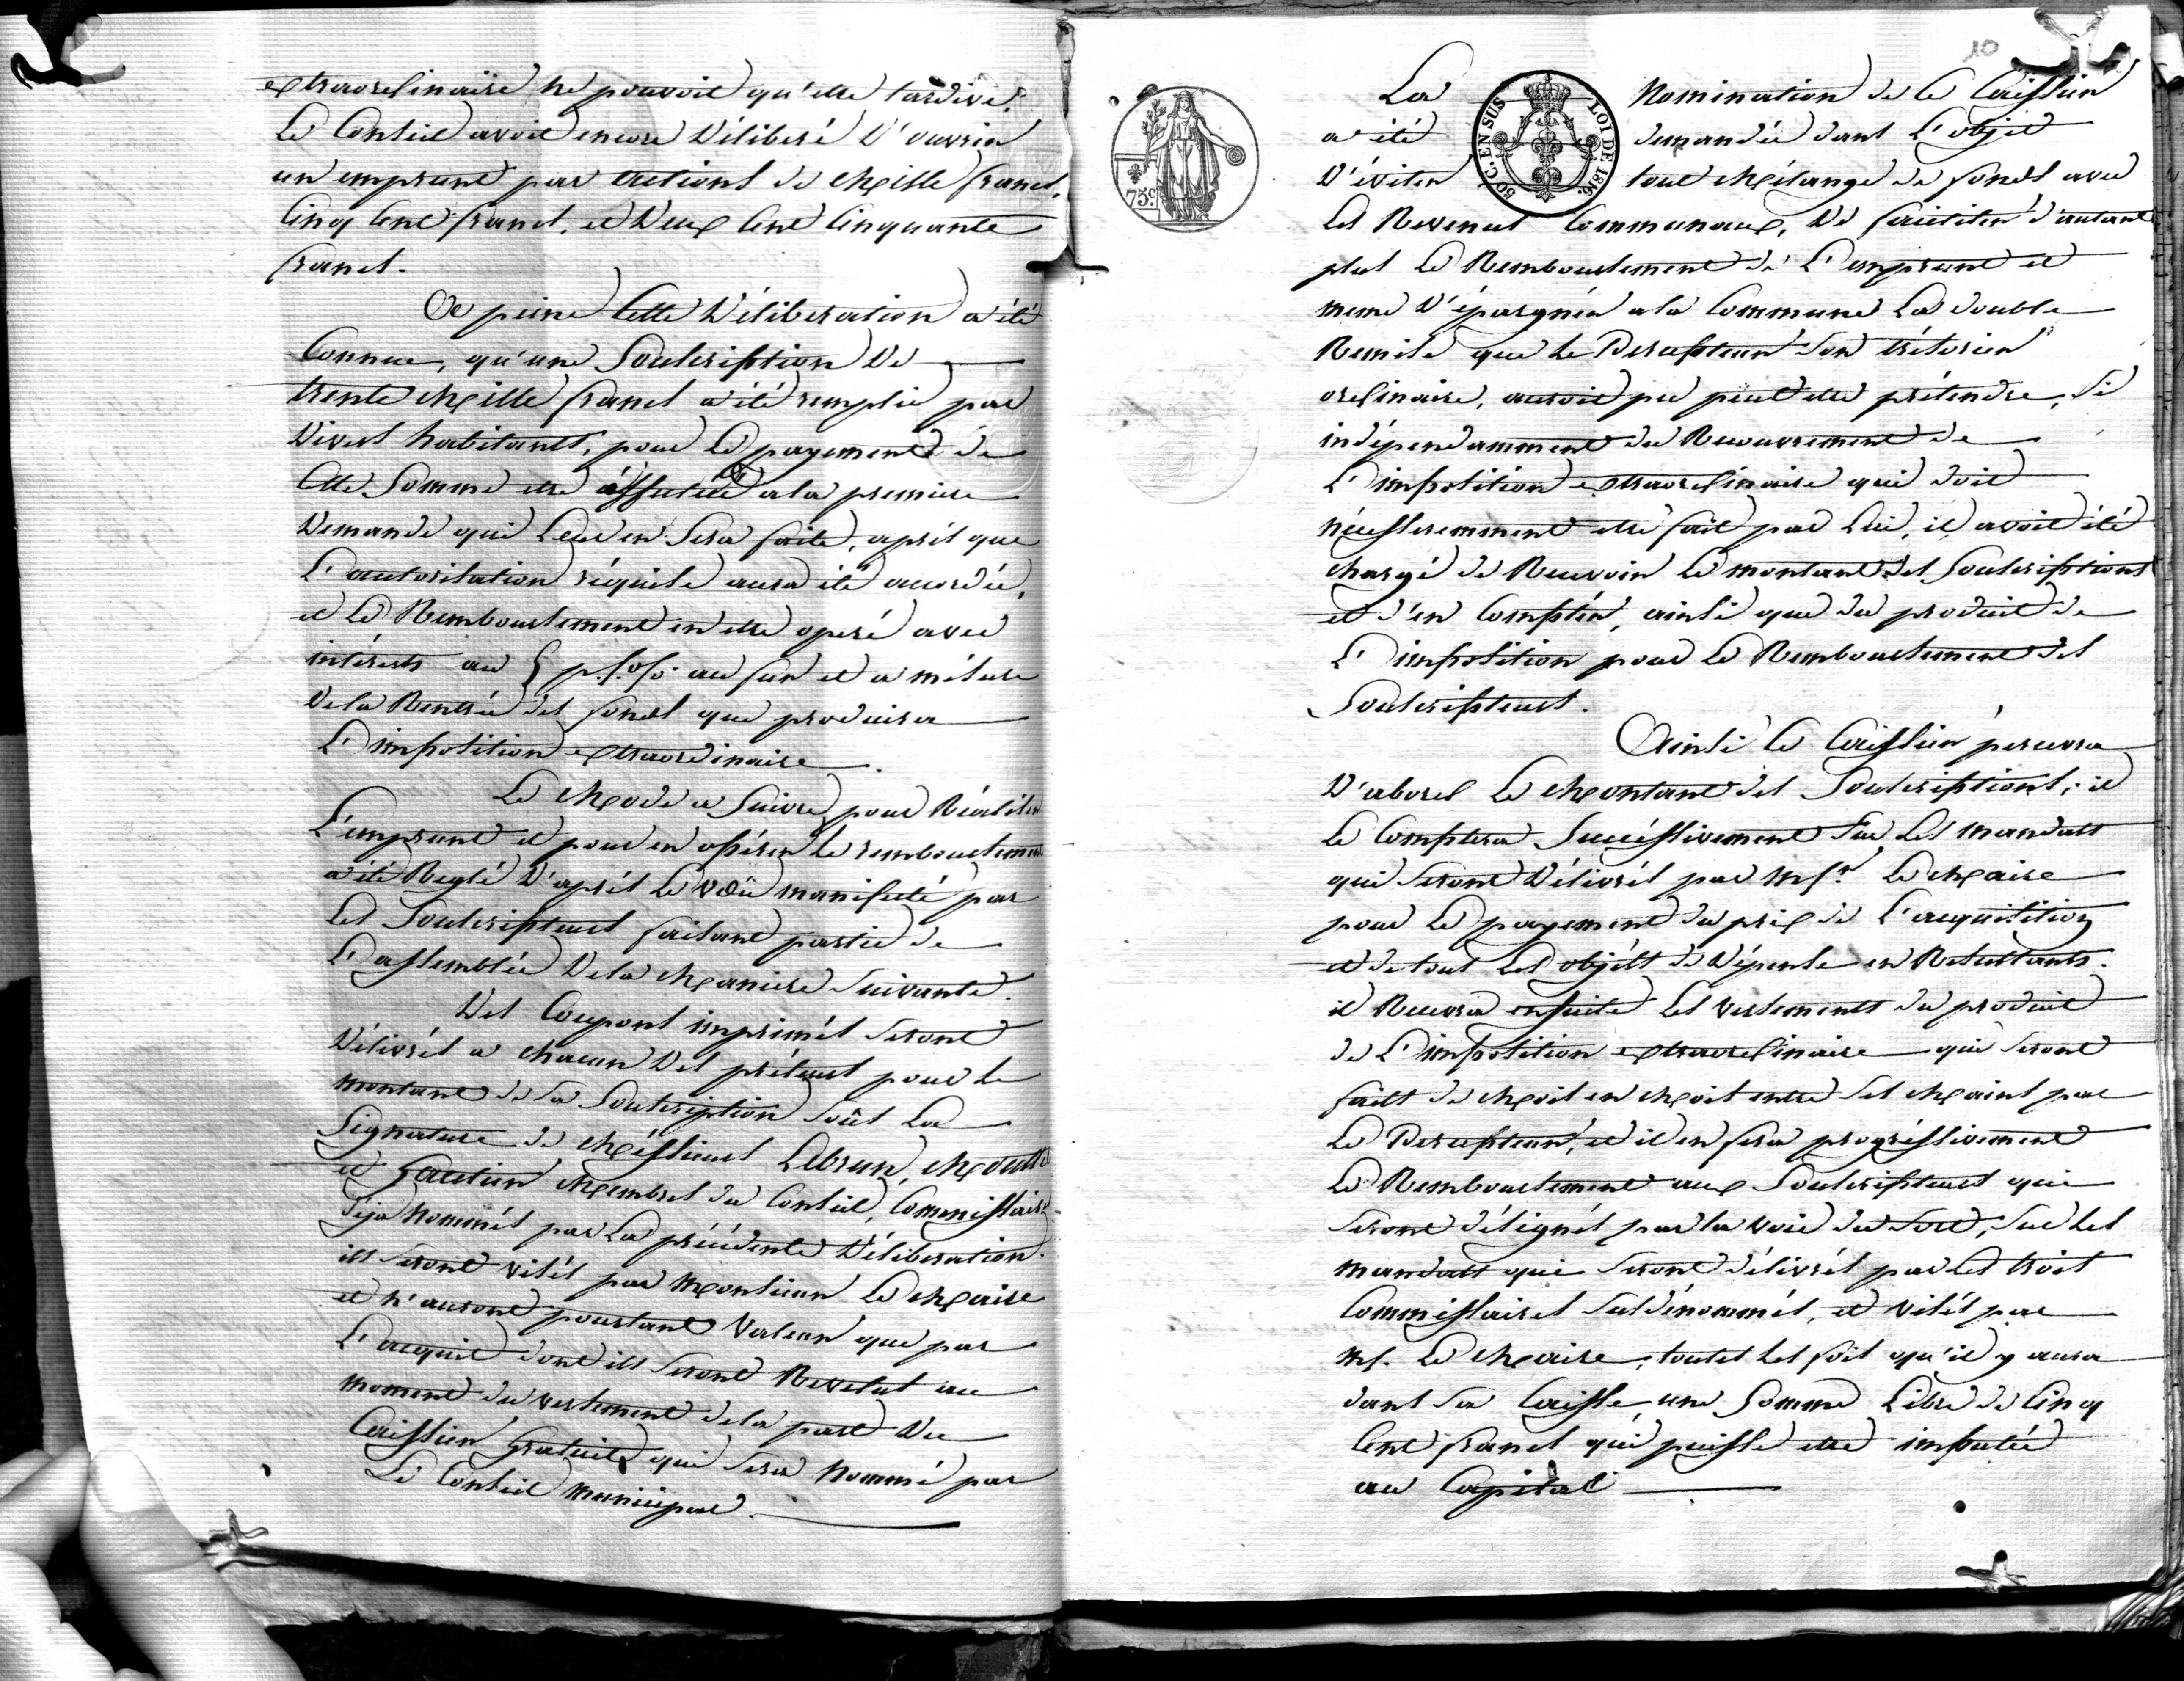 extraordinaire ne pouvoit qu'etre tardive.
Le Conseil avoit encore Déliberé D'ouvrir
un emprunt par actions de Mille francs,
Cinq Cent francs, et Deux Cent Cinquante
francs.
A peine Cette Déliberation a été
Connue, qu'une Souscription De
trente Mille francs a été remplie par
Divers habitants, pour Le payement de
Cette Somme etre éffectué a la premiere
Demande qui Leur en Sera faite, après que
L'autorisation réquise aura été accordée,
et Le Remboursement en etre operé avec
intérests au 5 p.% au fur et a mésure
De la Rentrée des fonds que produira
L'imposition extraordinaire.
Le Mode a Suivre pour Réaliser
L'emprunt et pour en opérer Le remboursement
a été Reglé D'après Le vœü manifesté par
Les Souscripteurs faisant partie de
L'assemblée De la Maniere Suivante.
Des Coupons imprimés Seront
Délivrés a chacun Des préteurs pour le
montant de Sa Souscription Soûs La
Signature de Méssieurs Lebrun,
et Gautier Membres du Conseil, Commissaires
deja Nommés par La précédente Déliberation.
ils Seront visés par Monsieur Le Maire
et n'auront pourtant Valeur que par
L'acquit dont ils Seront Revetus au
moment du versement de la part Du
Caissier Gratuit qui Sera Nommé par
Le Conseil Municipal.
10
75c.
50 C. EN SUS
LOI DE 1816.
La Nomination de Ce Caissier
a été demandée dans L'objet
D'éviter tout Mélange de fonds avec
Les Revenus Communaux, De faciliter d'autant
plus Le Remboursement de L'emprunt et
meme D'épargner a la Commune La double
Remise que le Percepteur Son trésorier
ordinaire, auroit pu peut etre prétendre, Si
indépendamment du Recouvrement de
L'imposition extraordinaire qui doit
nécésseremment etre fait par Lui, il avoit été
Chargé de Recevoir Le montant des Souscriptions
et d'en Compter, ainsi que du produit de
L'imposition pour Le Remboursement des
Souscripteurs.
Ainsi Ce Caissier percevra
D'abord Le Montant des Souscriptions; il
Le Comptera Succéssivement Sur Les Mandats
qui Seront Délivrés par Mr. Le Maire
pour Le payement du prix de L'acquisition
et de tous Les objéts de Dépense en Resultants.
il Recevra ensuite Les versements du produit
de L'imposition extraordinaire qui Seront
faits de Mois en Mois entre Ses Mains par
Le Percepteur, et il en fera progréssivement
Le Remboursement aux Souscripteurs qui
Seront désignés par la voie du Sort, Sur Les
mandats qui Seront délivrés par Les trois
Commissaires Susdénommés, et visés par
Mr. Le Maire, toutes Les fois qu'il y aura
dans Sa Caisse une Somme Libre de Cinq
Cent francs qui puisse etre imputée
au Capital